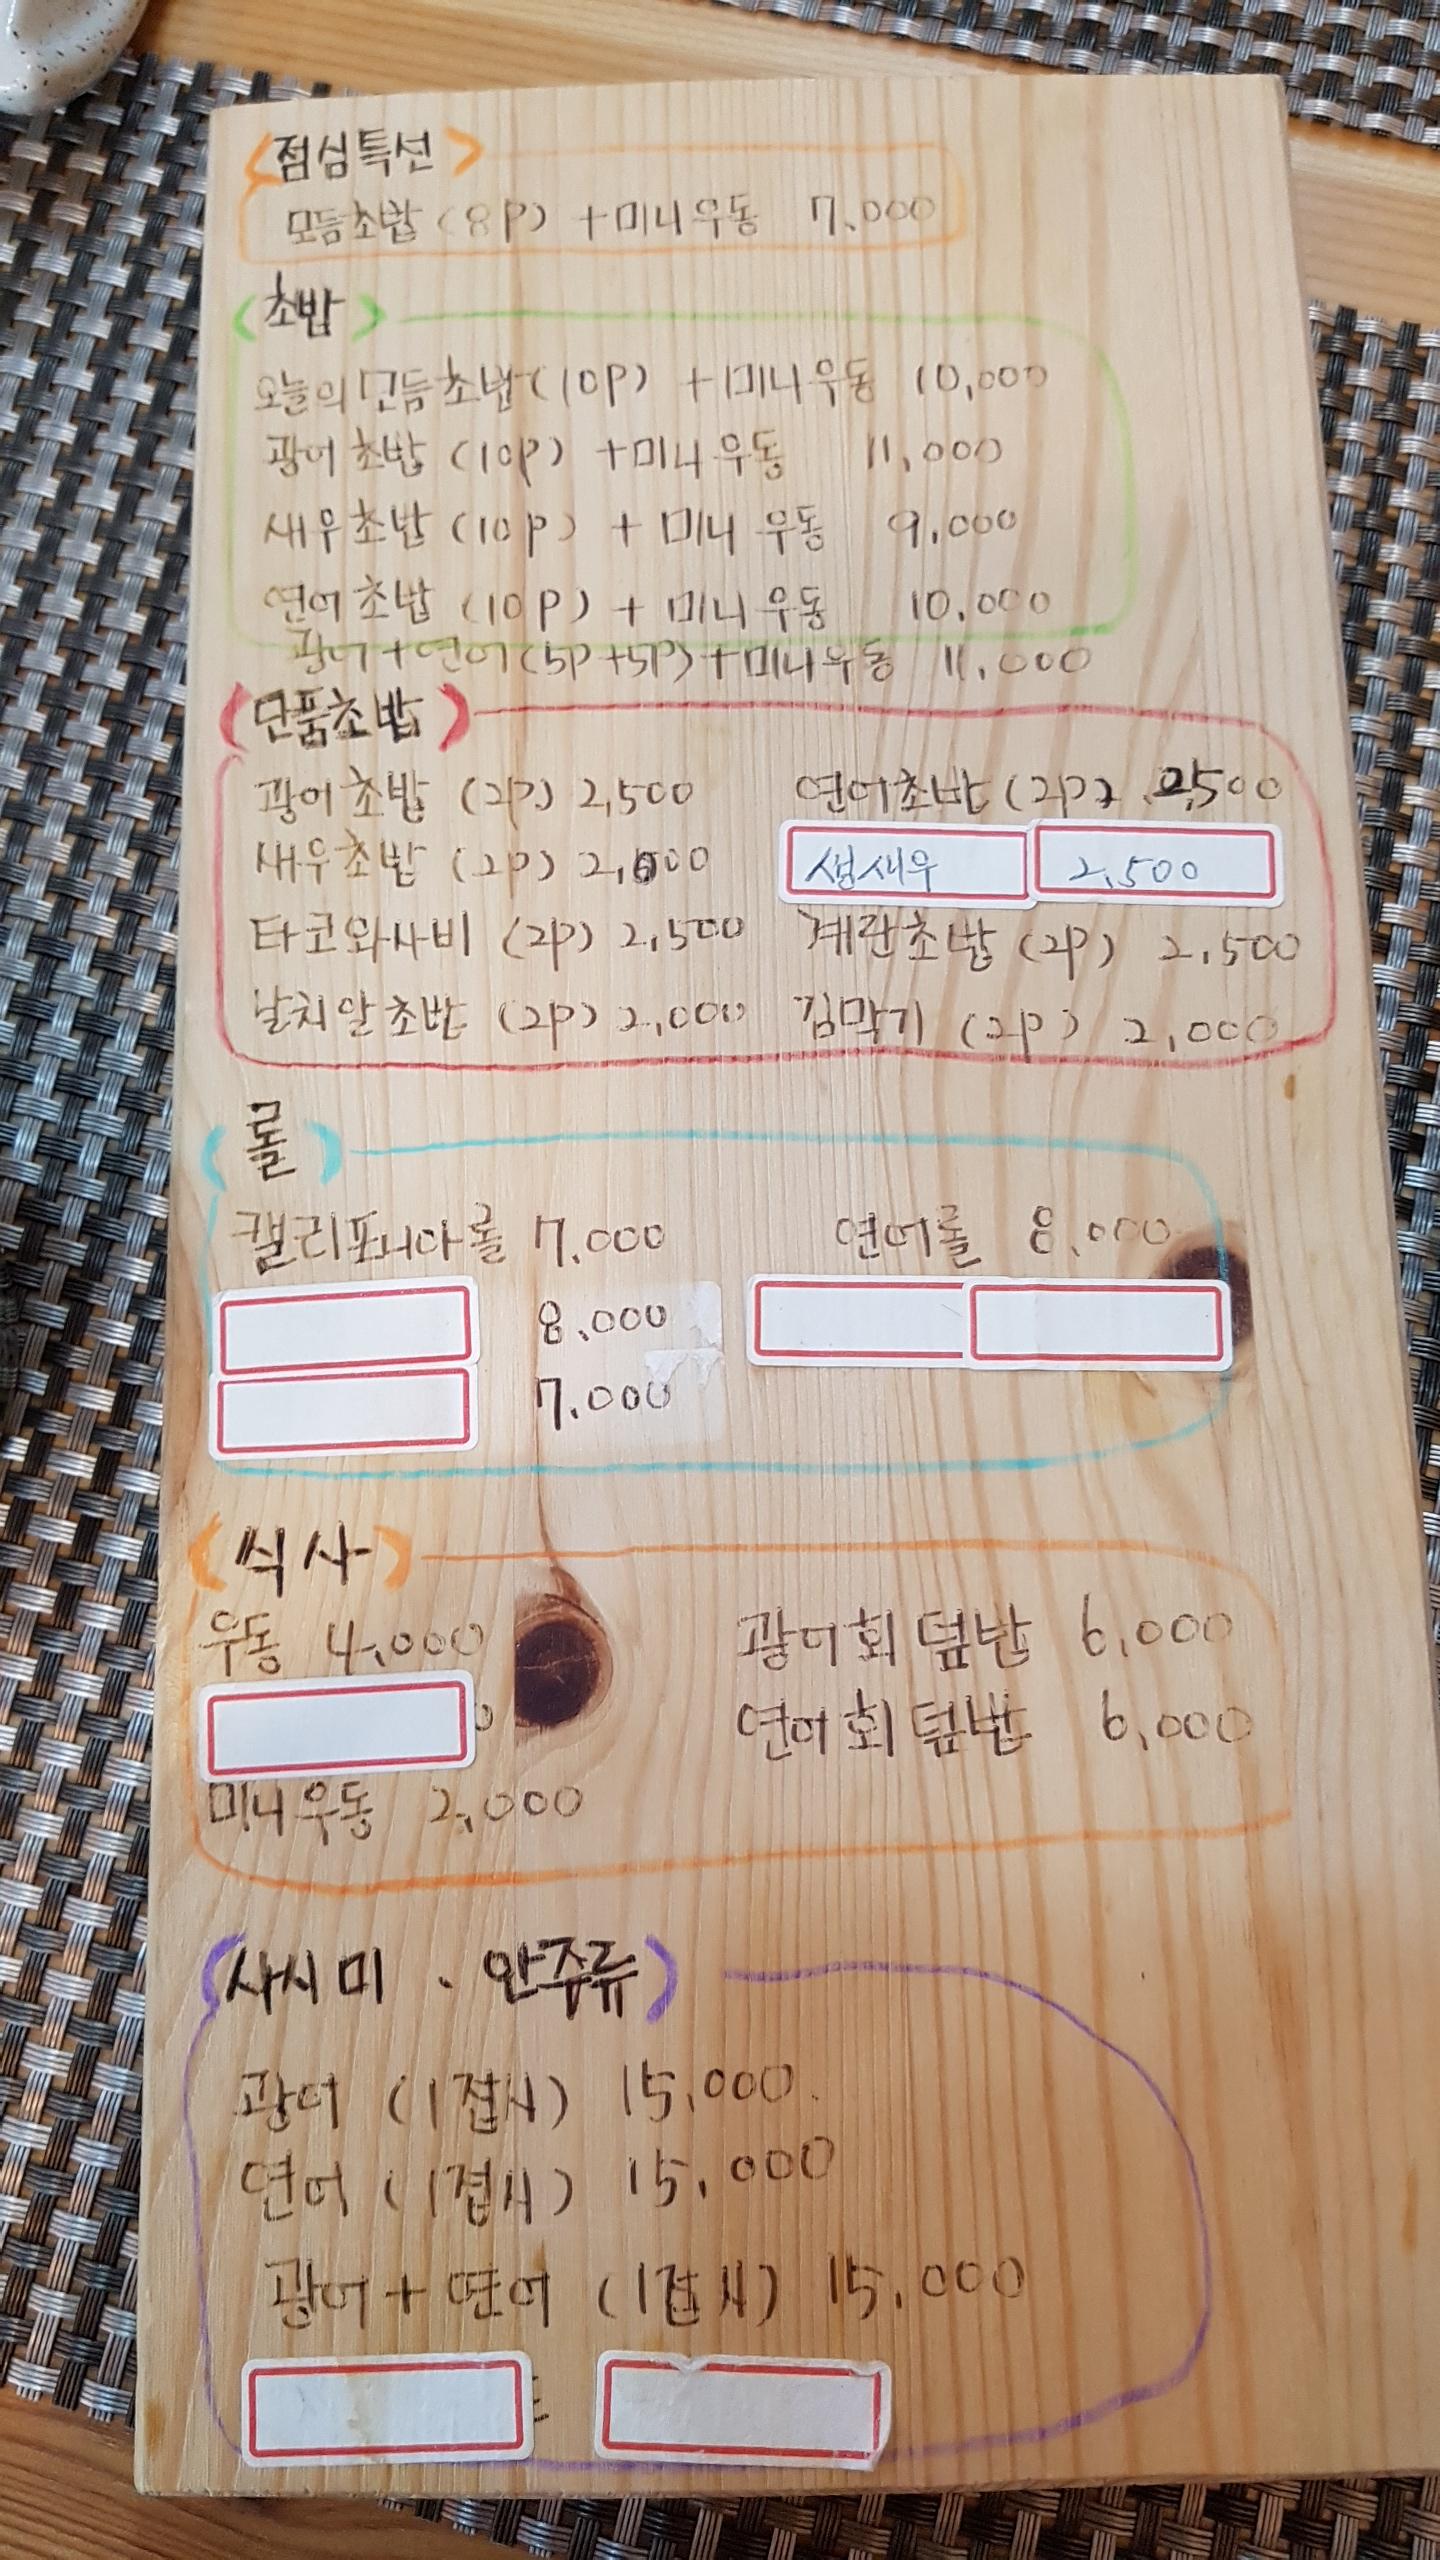 <점심특선>
모듬초밥 (8P) +미니우동 7,000
<초밥>
오늘의모듬초밥(10P) +미니우동 10,000
광어초밥 (10P) +미니우동 11,000
새우초밥 (10P) + 미니우동 9,000
연어초밥 (10P) + 미니우동 10,000
광어+연어(5P+5P)+미니우동 11,000
(단품초밥)
광어초밥 (2P) 2,500 연어초밥 (2P) 2,500
새우초밥 (2P) 생새우 2,500
타코와사비 (2P) 2,500 계란초밥 (2P) 2,500
날치알초밥 (2P) 2,000 김막기 (2P) 2,000
(롤)
캘리포니아롤 7,000 연어롤 8,000
8,000
7,000
(식사)
우동 4,000 광어회덮밥 6,000
연어회덮밥 6,000
미니우동 2,000
(사시미 · 안주류)
광어 (1접시) 15,000
연어 (1접시) 15,000
광어+연어 (1접시) 15,000